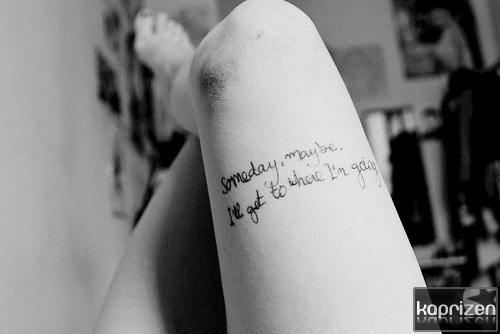 someday, maybe.
I'll get to where I'm going
kaprizen